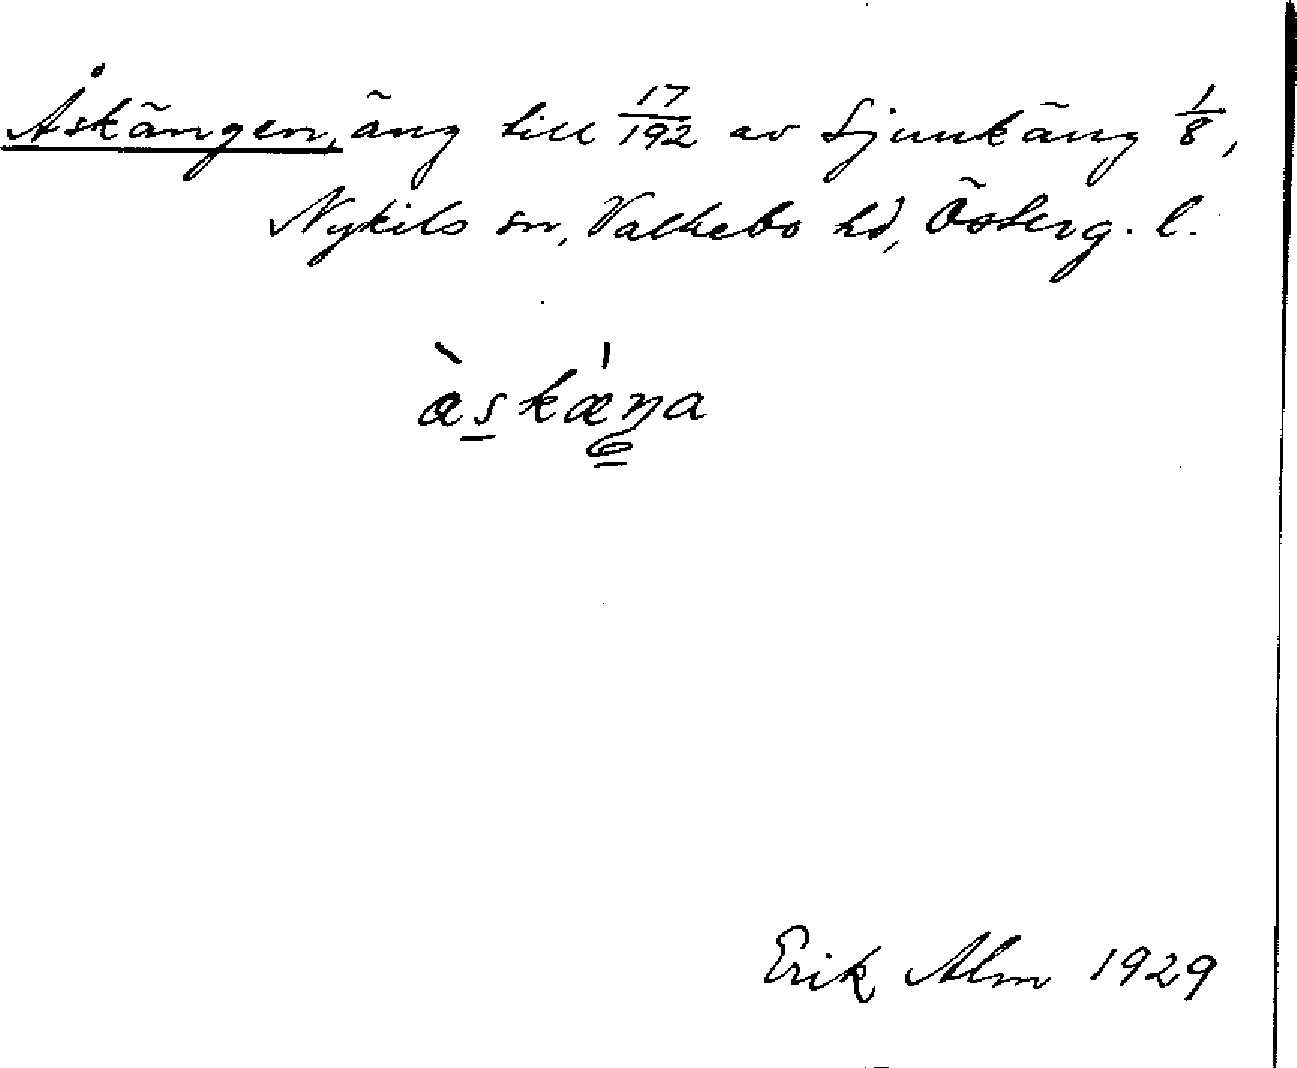 Åskängen, äng till 17/192 av Ljunkäng 1/8,
Nykils sn, Valkebo hd, Österg. l.
æ̀skǽŋa
Erik Alm 1929